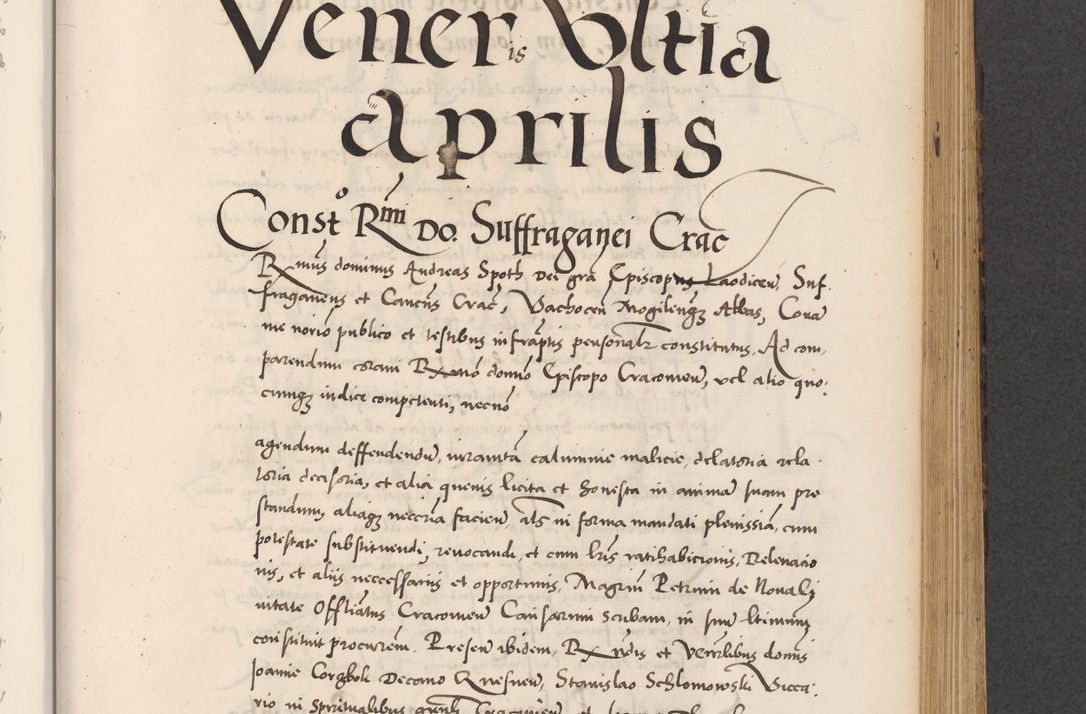 Veneris Vltia
aprilis
Constᵒ Rmi Do. Suffraganei Crac
Rmus dominus Andreas Spoth dei gra Episcopus Laodiceñ Suf-
fraganeus et Cancus Crac, Vachoceñ Mogilensqz Abbas, Cora
me norio publico et testibus infraptis personalr constitutus, Ad com-
parendum coram Rmo domino Episcopo Cracovieñ, vel alio quo-
cunqz iudice competenti, necno
agendum deffendendu, iurantu calumnie malicie, delatoria rela-
toria decisoria, et alia quevis licita et honesta in anima suam pre
standum aliaqz neccria facieñ, als in forma mandati plenissia, cum
potestate substituendi, revocandi, et cum lris ratihabicionis, Relevacio
nis, et aliis neccessariis et opportunis, Magrm Petrum de Nouali
uitate Offliatus Cracovieñ Causarum scribam, in suu ltimum
constituit procurem. Preseñ ibidem, Rndis et Venerlibus dominis
Joanne Corgbok Decano Gnesneñ, Stanislao Schlomowski Vica-
rio in Spiritualibus genli Cracovieñ et